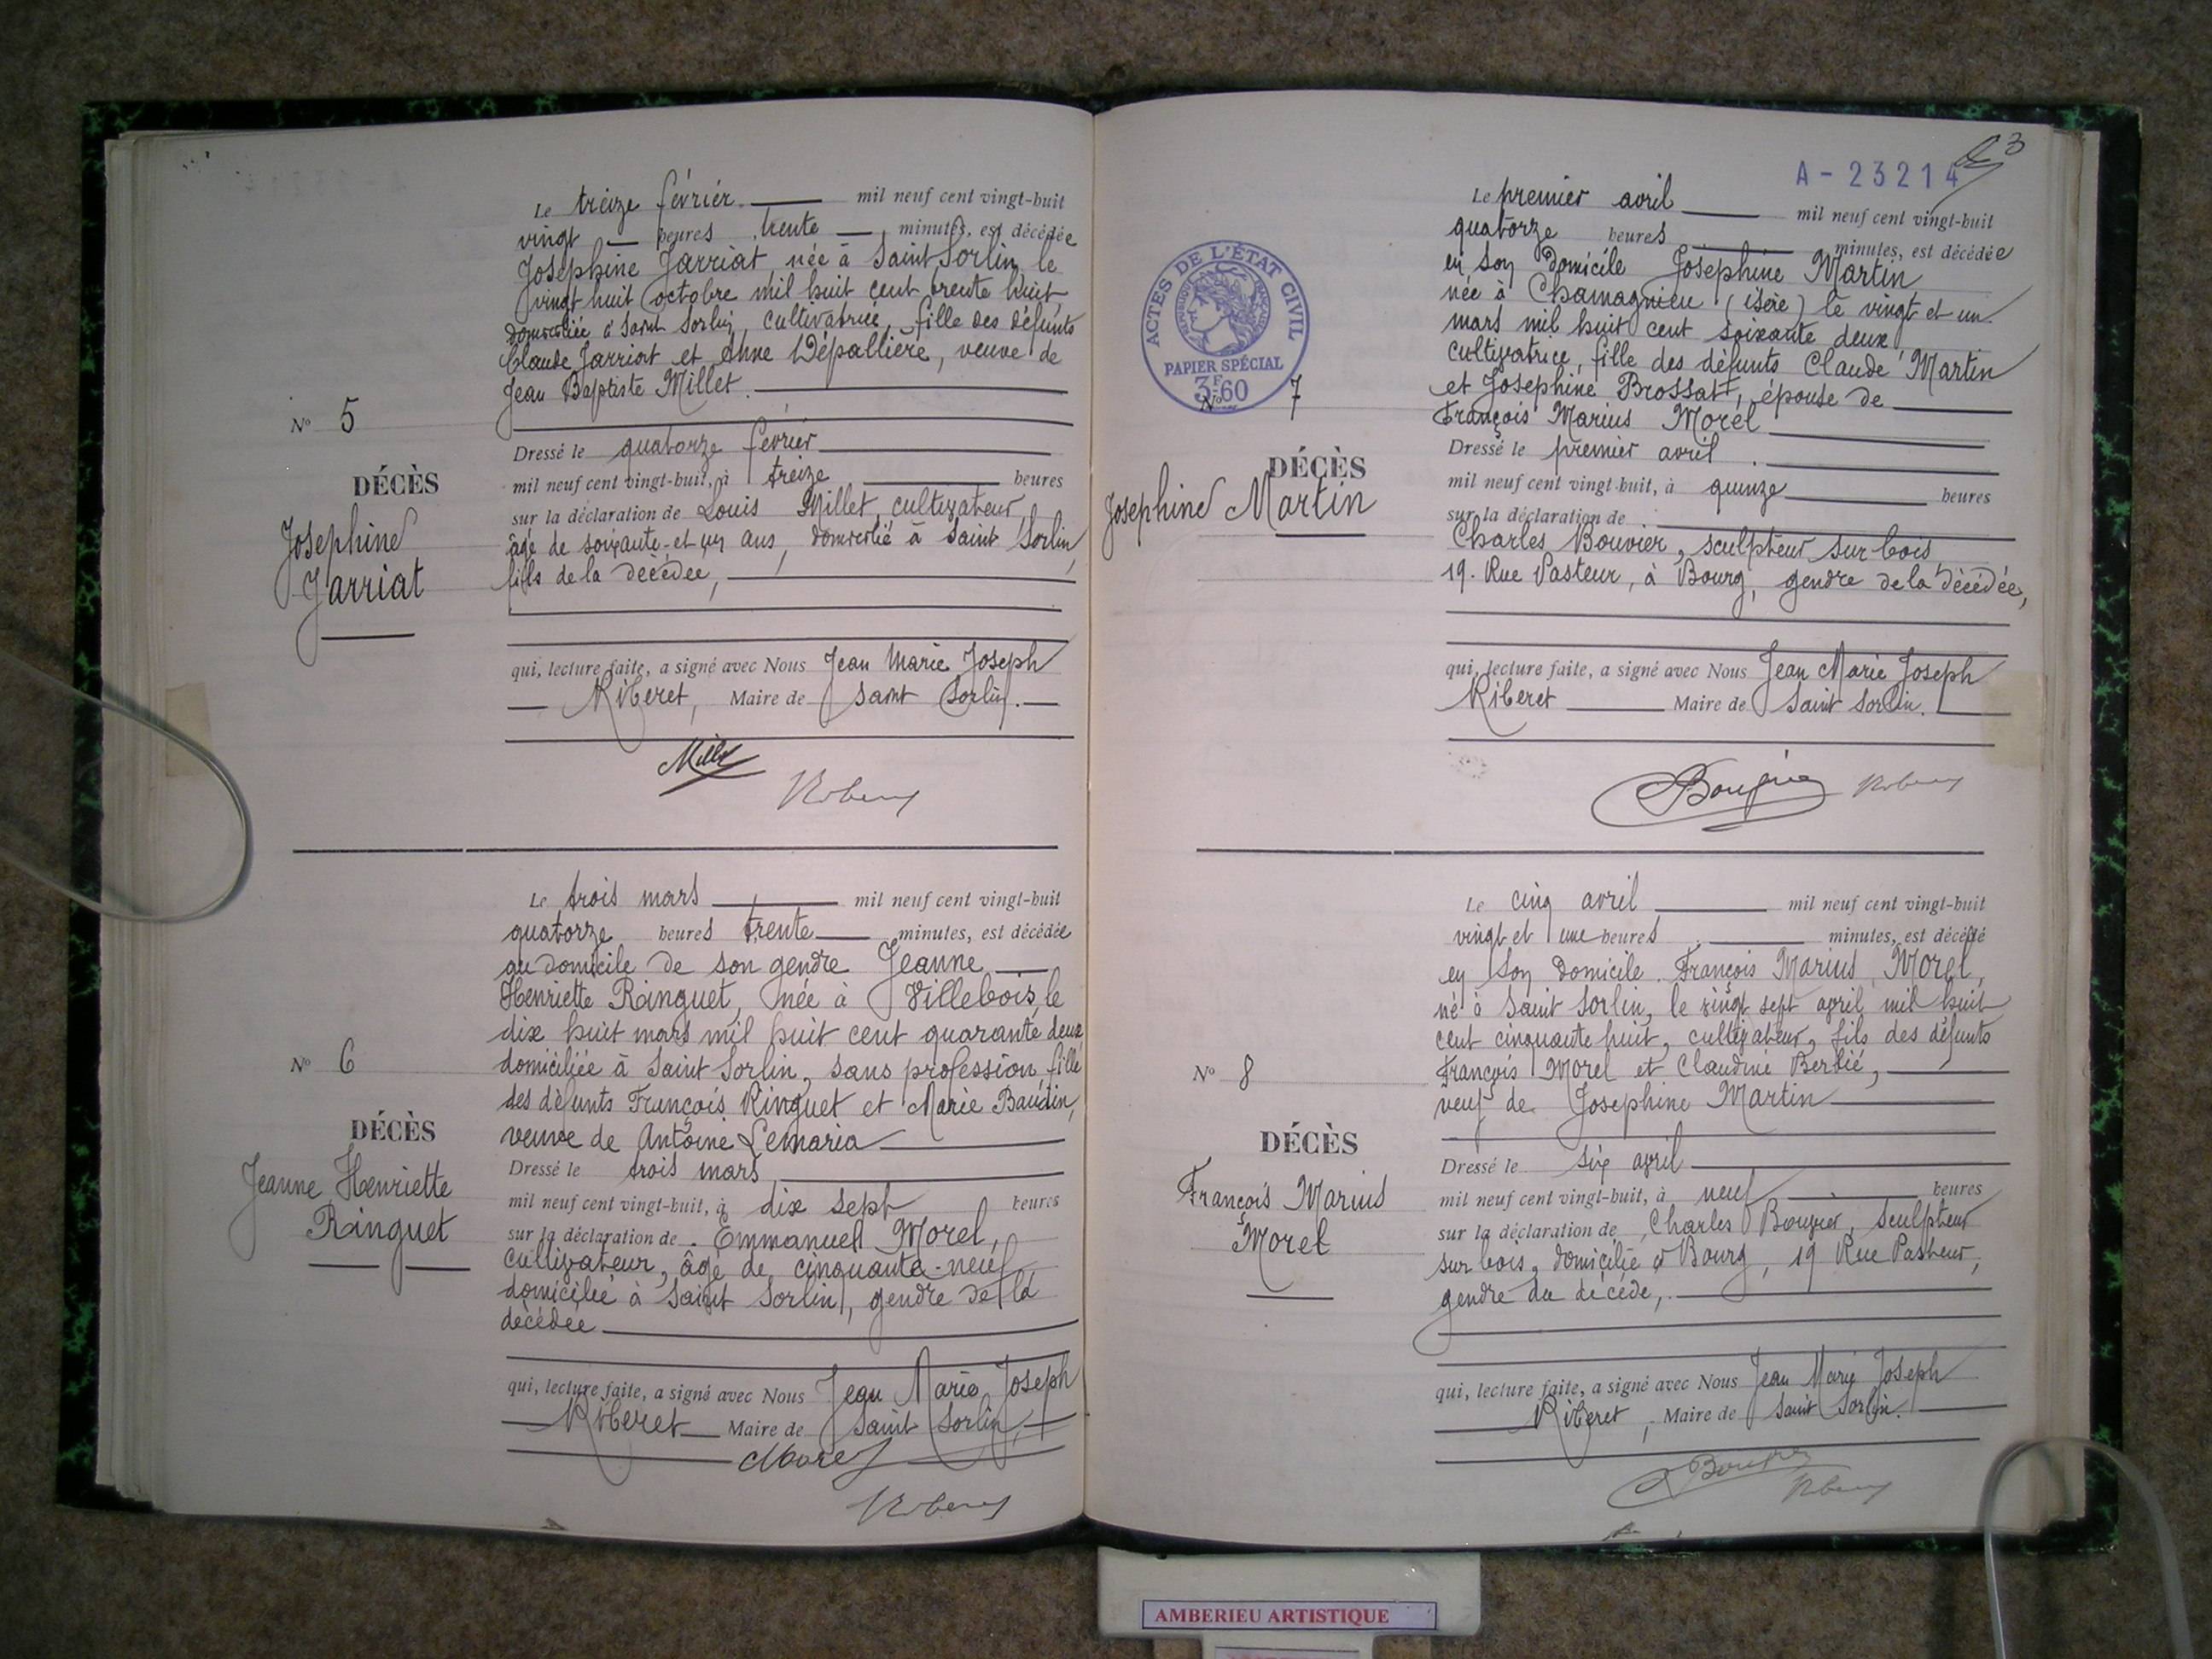 Le treize février mil neuf cent vingt-huit
vingt heures trente minutes, est décédée
Josephine Jarriat née à Saint Sorlin le
vingt huit octobre mil huit cent trente huit
domiciliée à Saint Sorlin, cultivatrice, fille des défunts
Claude Jarriat et Anne Dépallière, veuve de
Jean Baptiste Millet.
No 5
Dressé le quatorze février
mil neuf cent vingt-huit, à treize heures
DÉCÈS
sur la déclaration de Louis Millet, cultivateur,
Josephine
Jarriat
âgé de soixante-et-un ans, domicilié à Saint Sorlin,
fils de la décédée,
qui, lecture faite, a signé avec Nous Jean Marie Joseph
Riberet, Maire de Saint Sorlin.
Le trois mars mil neuf cent vingt-huit
quatorze heures trente minutes, est décédée
au domicile de son gendre Jeanne
Henriette Ringuet, née à Villebois, le
dix huit mars mil huit cent quarante deux
No 6
domiciliée à Saint Sorlin, sans profession, fille
des défunts François Ringuet et Marie Baudin,
DÉCÈS
veuve de Antoine Lemaria
Jeanne Henriette
Ringuet
Dressé le trois mars
mil neuf cent vingt-huit, à dix sept heures
sur la déclaration de Emmanuel Morel,
cultivateur, âgé de cinquante-neuf
domicilié à Saint Sorlin, gendre de la
décédée
qui, lecture faite, a signé avec Nous Jean Marie Joseph
Riberet Maire de Saint Sorlin,
Morel
A-23214
ACTES DE L'ÉTAT CIVIL
RÉPUBLIQUE FRANÇAISE
PAPIER SPÉCIAL
3F60
Le premier avril mil neuf cent vingt-huit
quatorze heures minutes, est décédée
en son domicile Josephine Martin
née à Chamagnieu (isère) le vingt et un
mars mil huit cent soixante deux,
cultivatrice, fille des défunts Claude Martin
et Josephine Brossat, épouse de
François Marius Morel
No 7
DÉCÈS
Josephine Martin
Dressé le premier avril
mil neuf cent vingt-huit, à quinze heures
sur la déclaration de
Charles Bouvier, sculpteur sur bois,
19. Rue Pasteur, à Bourg, gendre de la décédée,
qui, lecture faite, a signé avec Nous Jean Marie Joseph
Riberet Maire de Saint Sorlin.
Le cinq avril mil neuf cent vingt-huit
vingt et une heures minutes, est décédé
en son domicile François Marius Morel,
né à Saint Sorlin, le vingt sept avril mil huit
cent cinquante huit, cultivateur, fils des défunts
No 8
François Morel et Claudine Berlié,
veuf de Josephine Martin
DÉCÈS
François Marius
Morel
Dressé le six avril
mil neuf cent vingt-huit, à neuf heures
sur la déclaration de Charles Bouvier, sculpteur
sur bois, domicilié à Bourg, 19 Rue Pasteur,
gendre du décédé,
qui, lecture faite, a signé avec Nous Jean Marie Joseph
Riberet, Maire de Saint Sorlin.
AMBERIEU ARTISTIQUE